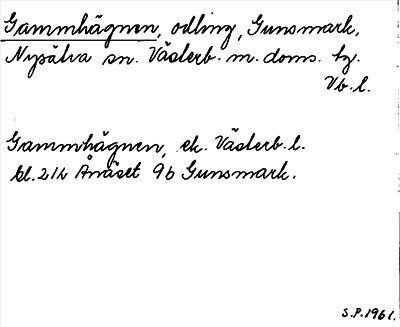 Gammhägnen, odling, Gunsmark,
Nysätra sn. Västerb. m. doms. tg.
Vb. l.
Gammhägnen, ek. Västerb. l.
bl. 21k Ånäset 9b Gunsmark.
S.P. 1961.